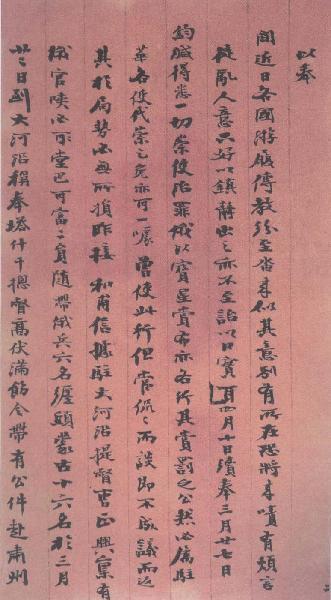 以奉
聞近日各國游歷傳教紛至沓來似其意別有所在恐將來嘖有煩言
徒亂人意只好以鎮靜出之亦不至詒以口實耳四月十日續奉三月廿七日
鈞緘得悉一切崇使治罪俄以寶星賞布亦各行其賞罰之公然必屬駐
華各使代崇乞免亦可一噱曾使此行但當侃侃而談即不成議而返
其於局勢必無所損昨接和甫信據駐大河沿提督曹正興稟有
俄官陝必爾堂巴可富二員隨帶俄兵六名纏頭蒙古十六名於三月
日到大河沿稱奉塔什干總督高伏滿飭令帶有公件赴肅州